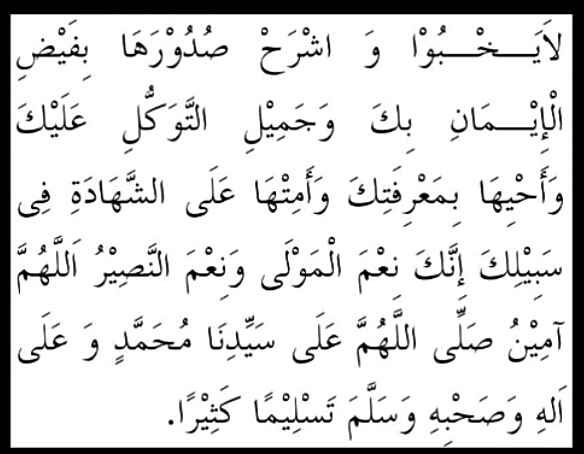 لاَيَـــخْـــبُوْا وَ اشْرَحْ صُدُوْرَهَا بِفَيْضِ
الْإِيْـــمَانِ بِكَ وَجَمِيْلِ التَّوَكُّلِ عَلَيْكَ
وَأَحْيِهَا بِمَعْرِفَتِكَ وَأَمِتْهَا عَلَى الشَّهَادَةِ فِى
سَبِيْلِكَ إِنَّكَ نِعْمَ الْمَوْلَى وَنِعْمَ النَّصِيْرُ اَللَّهُمَّ
آمِيْنُ صَلِّى اللَّهُمَّ عَلَى سَيِّدِنَا مُحَمَّدٍ وَ عَلَى
اَلهِ وَصَحْبِهِ وَسَلَّمَ تَسْلِيْمًا كَثِيْرًا.